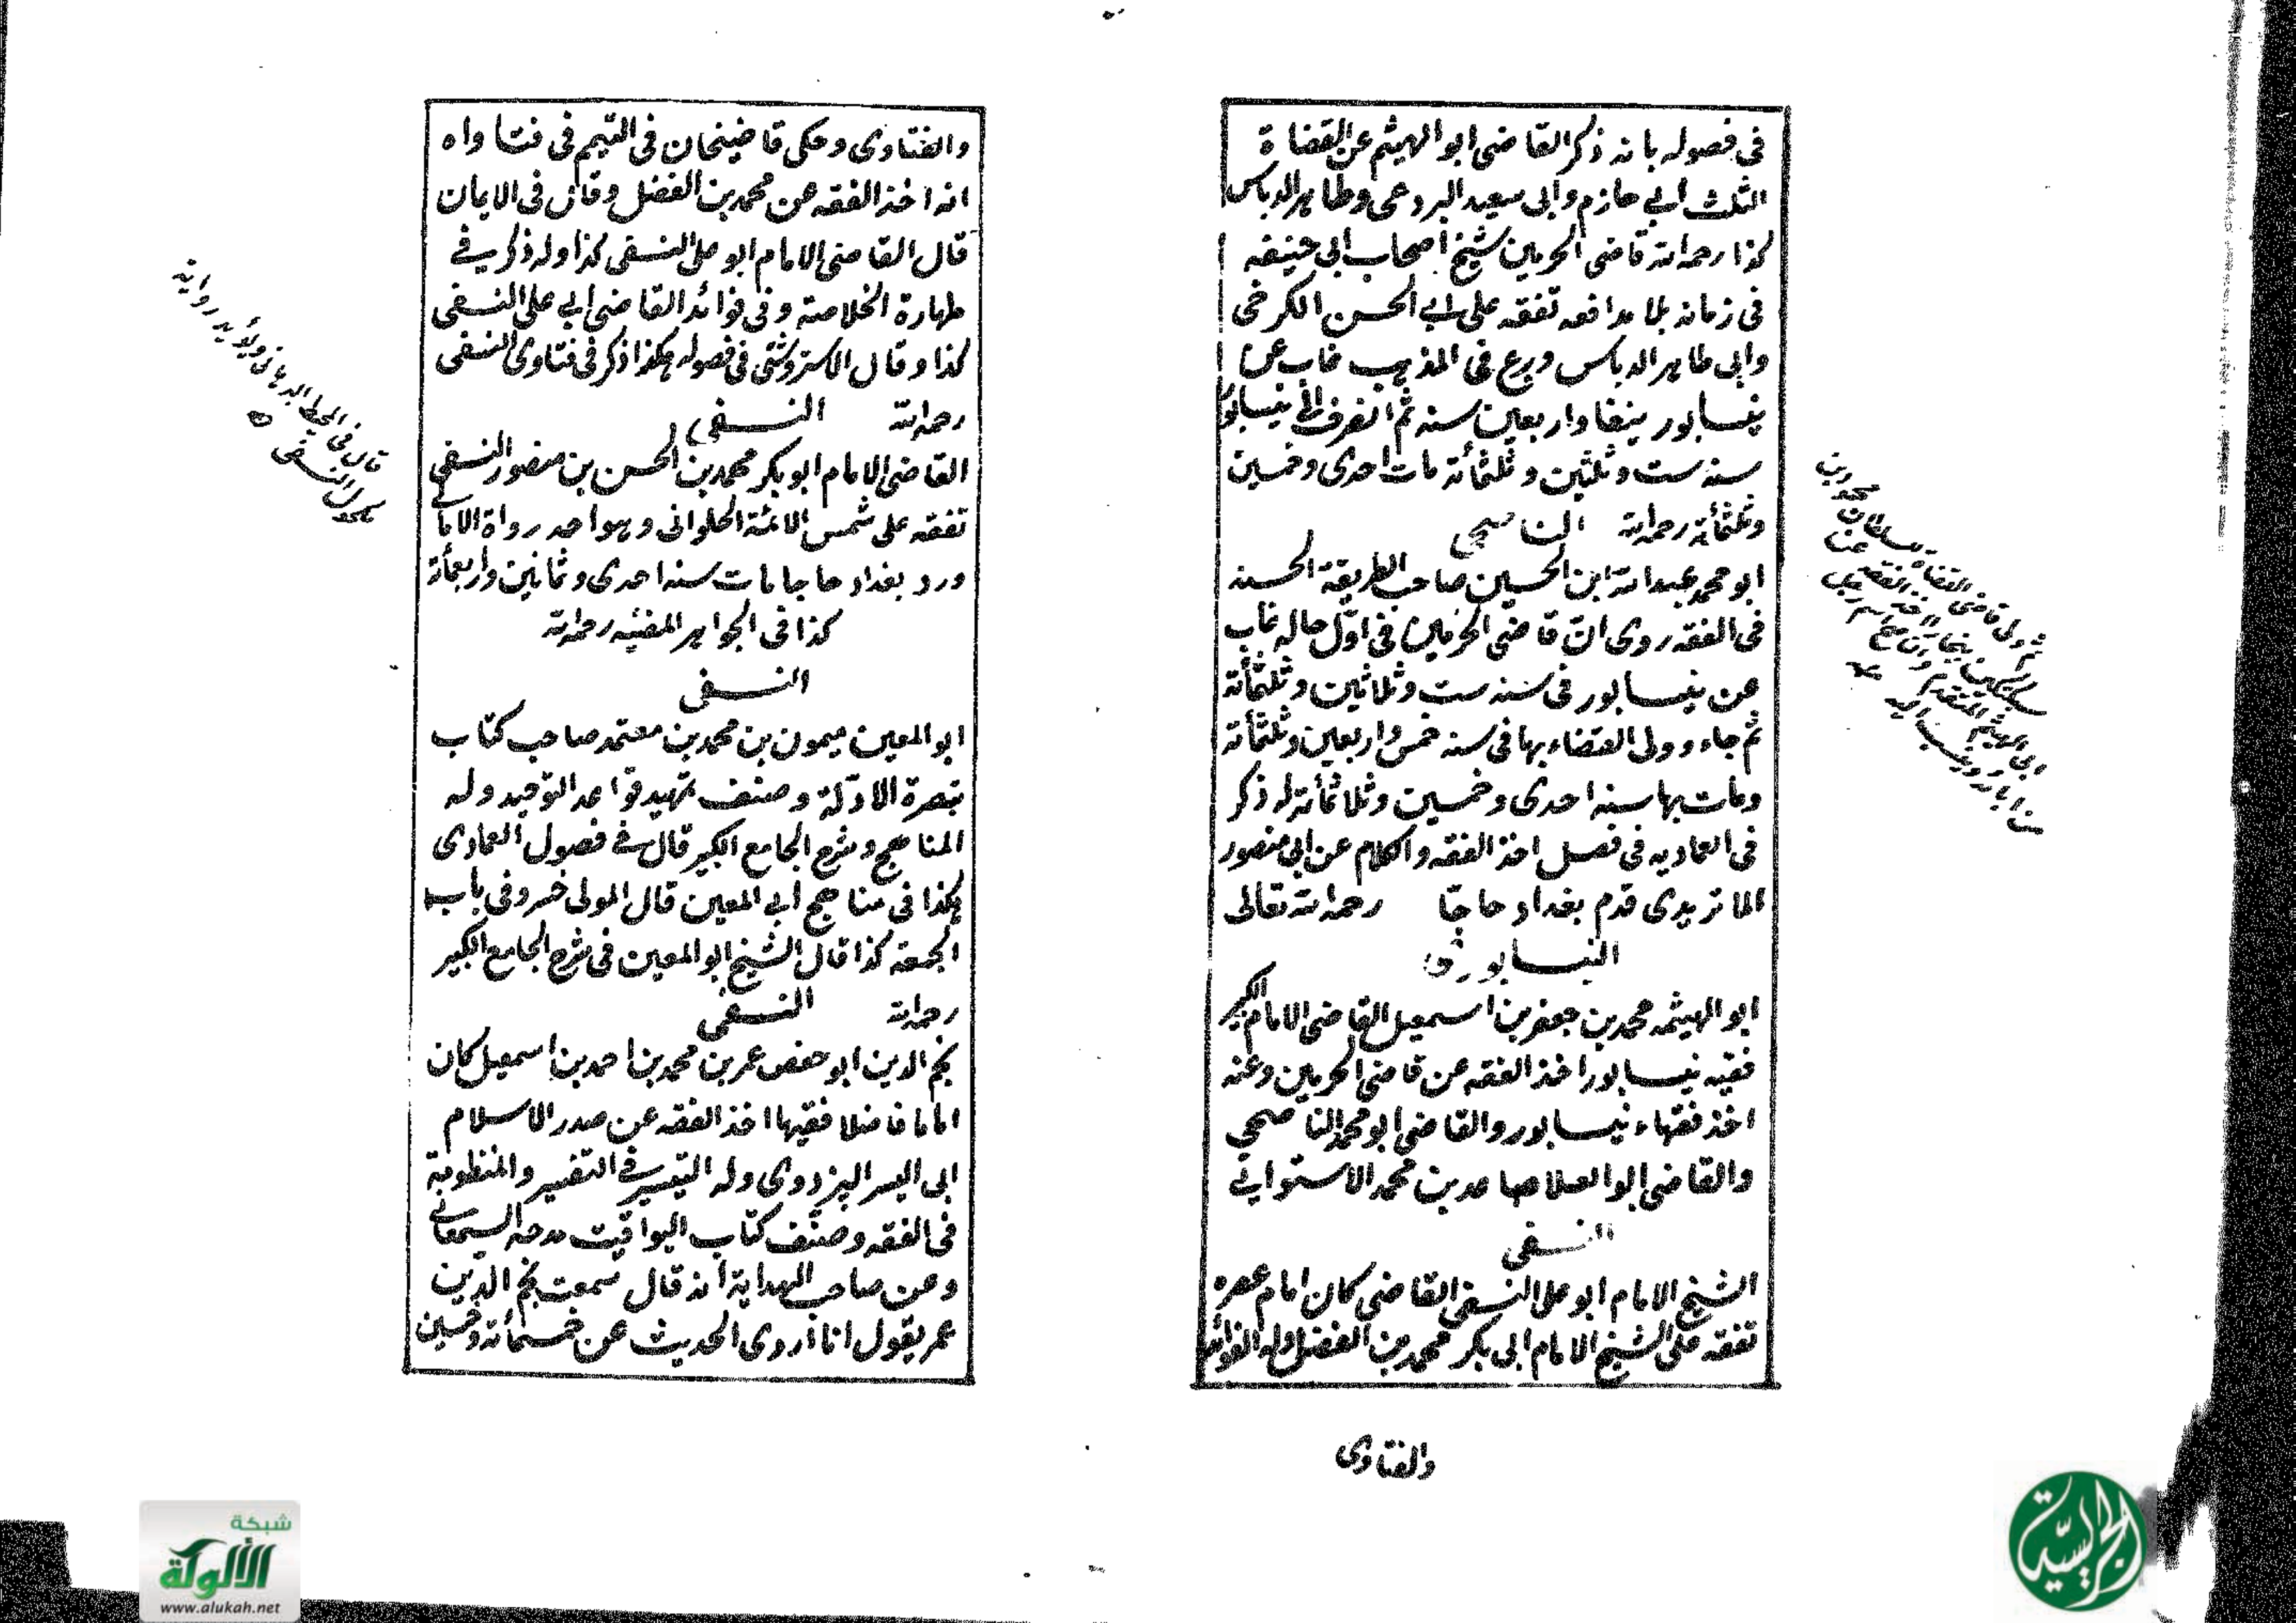 في فصوله بانه ذكر القاضى ابو الهيثم عن القضاة
الثلث ابي حازم وابى سعيد البردعى وطاهر الدباس
كذا رحمه الله قاضى الحرمين شيخ اصحاب ابى حنيفه
فى زمانه بلا مدافعه تفقه على ابي الحسن الكرخى
وابى طاهر الدباس وبرع فى المذهب غاب عن
نيسابور نيفا واربعين سنه ثم انصرف الى نيسابور
سنه ست وثلثين وثلثمأئة مات احدى وخمسين
وثلثمأئة رحمه الله الناصحى
ابو محمد عبد الله ابن الحسين صاحب الطريقة الحسنه
فى الفقه روى انّ قاضى الحرمين فى اوّل حاله غاب
عن نيسابور فى سنه ست وثلاثين وثلثمأئة
ثم جاء وولى القضاء بها فى سنه خمس واربعين وثلثمأئة
ومات بها سنه احدى وخمسين وثلاثمأئة له ذكر
فى العماديه فى فصل اخذ الفقه والكلام عن ابى منصور
الماتريدى قدم بغداد حاجّا رحمه الله تعالى
النيسابورى
ابو الهيثمه محمد بن جعفر بن اسمعيل القاضى الامام الكبير
فقيه نيسابور اخذ الفقه عن قاضى الحرمين وعنه
اخذ فقهاء نيسابور والقاضى ابو محمد الناصحي
والقاضى ابو العلا صاعد بن محمد الاستوايى
النسفى
الشيخ الامام ابو على النسفى القاضى كان امام عصره
تفقه على الشيخ الامام ابى بكر محمد بن الفضل وله الفوائد
والفتاوى
ثم ولى قاضى القضاة
والفتاوى وحكى قاضيخان فى التيمم فى فتاواه
انه اخذ الفقه عن محمد بن الفضل وقال فى الايمان
قال القاضى الامام ابو على النسفى كذا وله ذكر في
طهارة الخلاصة وفى فوائد القاضى ابي على النسفى
كذا وقال الاستروشنى فى فصوله هكذا ذكر فى فتاوى النسفى
رحمه الله النسفى
القاضى الامام ابو بكر محمد بن الحسن بن منصور النسفى
تفقه على شمس الائمة الحلوانى وهو احد رواة الامالى
ورد بغداد حاجا مات سنه احدى وثمانين واربعمأئة
كذا فى الجواهر المضئيه رحمه الله
النسفى
ابو المعين ميمون بن محمد بن معتمد صاحب كتاب
تبصرة الادّلة وصنف تمهيد قواعد التوحيد وله
المناهج وشرح الجامع الكبير قال في فصول العمادى
هكذا فى مناهج ابي المعين قال المولى خسرو فى باب
الجمعة كذا قال الشيخ ابو المعين فى شرح الجامع الكبير
رحمه الله النسفى
نجم الدين ابو حفص عمر بن محمد بن احمد بن اسمعيل كان
اماما فاضلا فقيها اخذ الفقه عن صدر الاسلام
ابى اليسر البزدوى وله التيسير في التفسير والمنظومة
فى الفقه وصنّف كتاب اليواقيت مدحه السمعانى
وعن صاحب الهداية انه قال سمعت نجم الدّين
عمر يقول انا اروى الحديث عن خمسمأئة وخمسين
قال فى المحيط البرهانى ويؤيد رواية
مكحول النسفى
شبكة
الألوكة
www.alukah.net
الجريسيّة